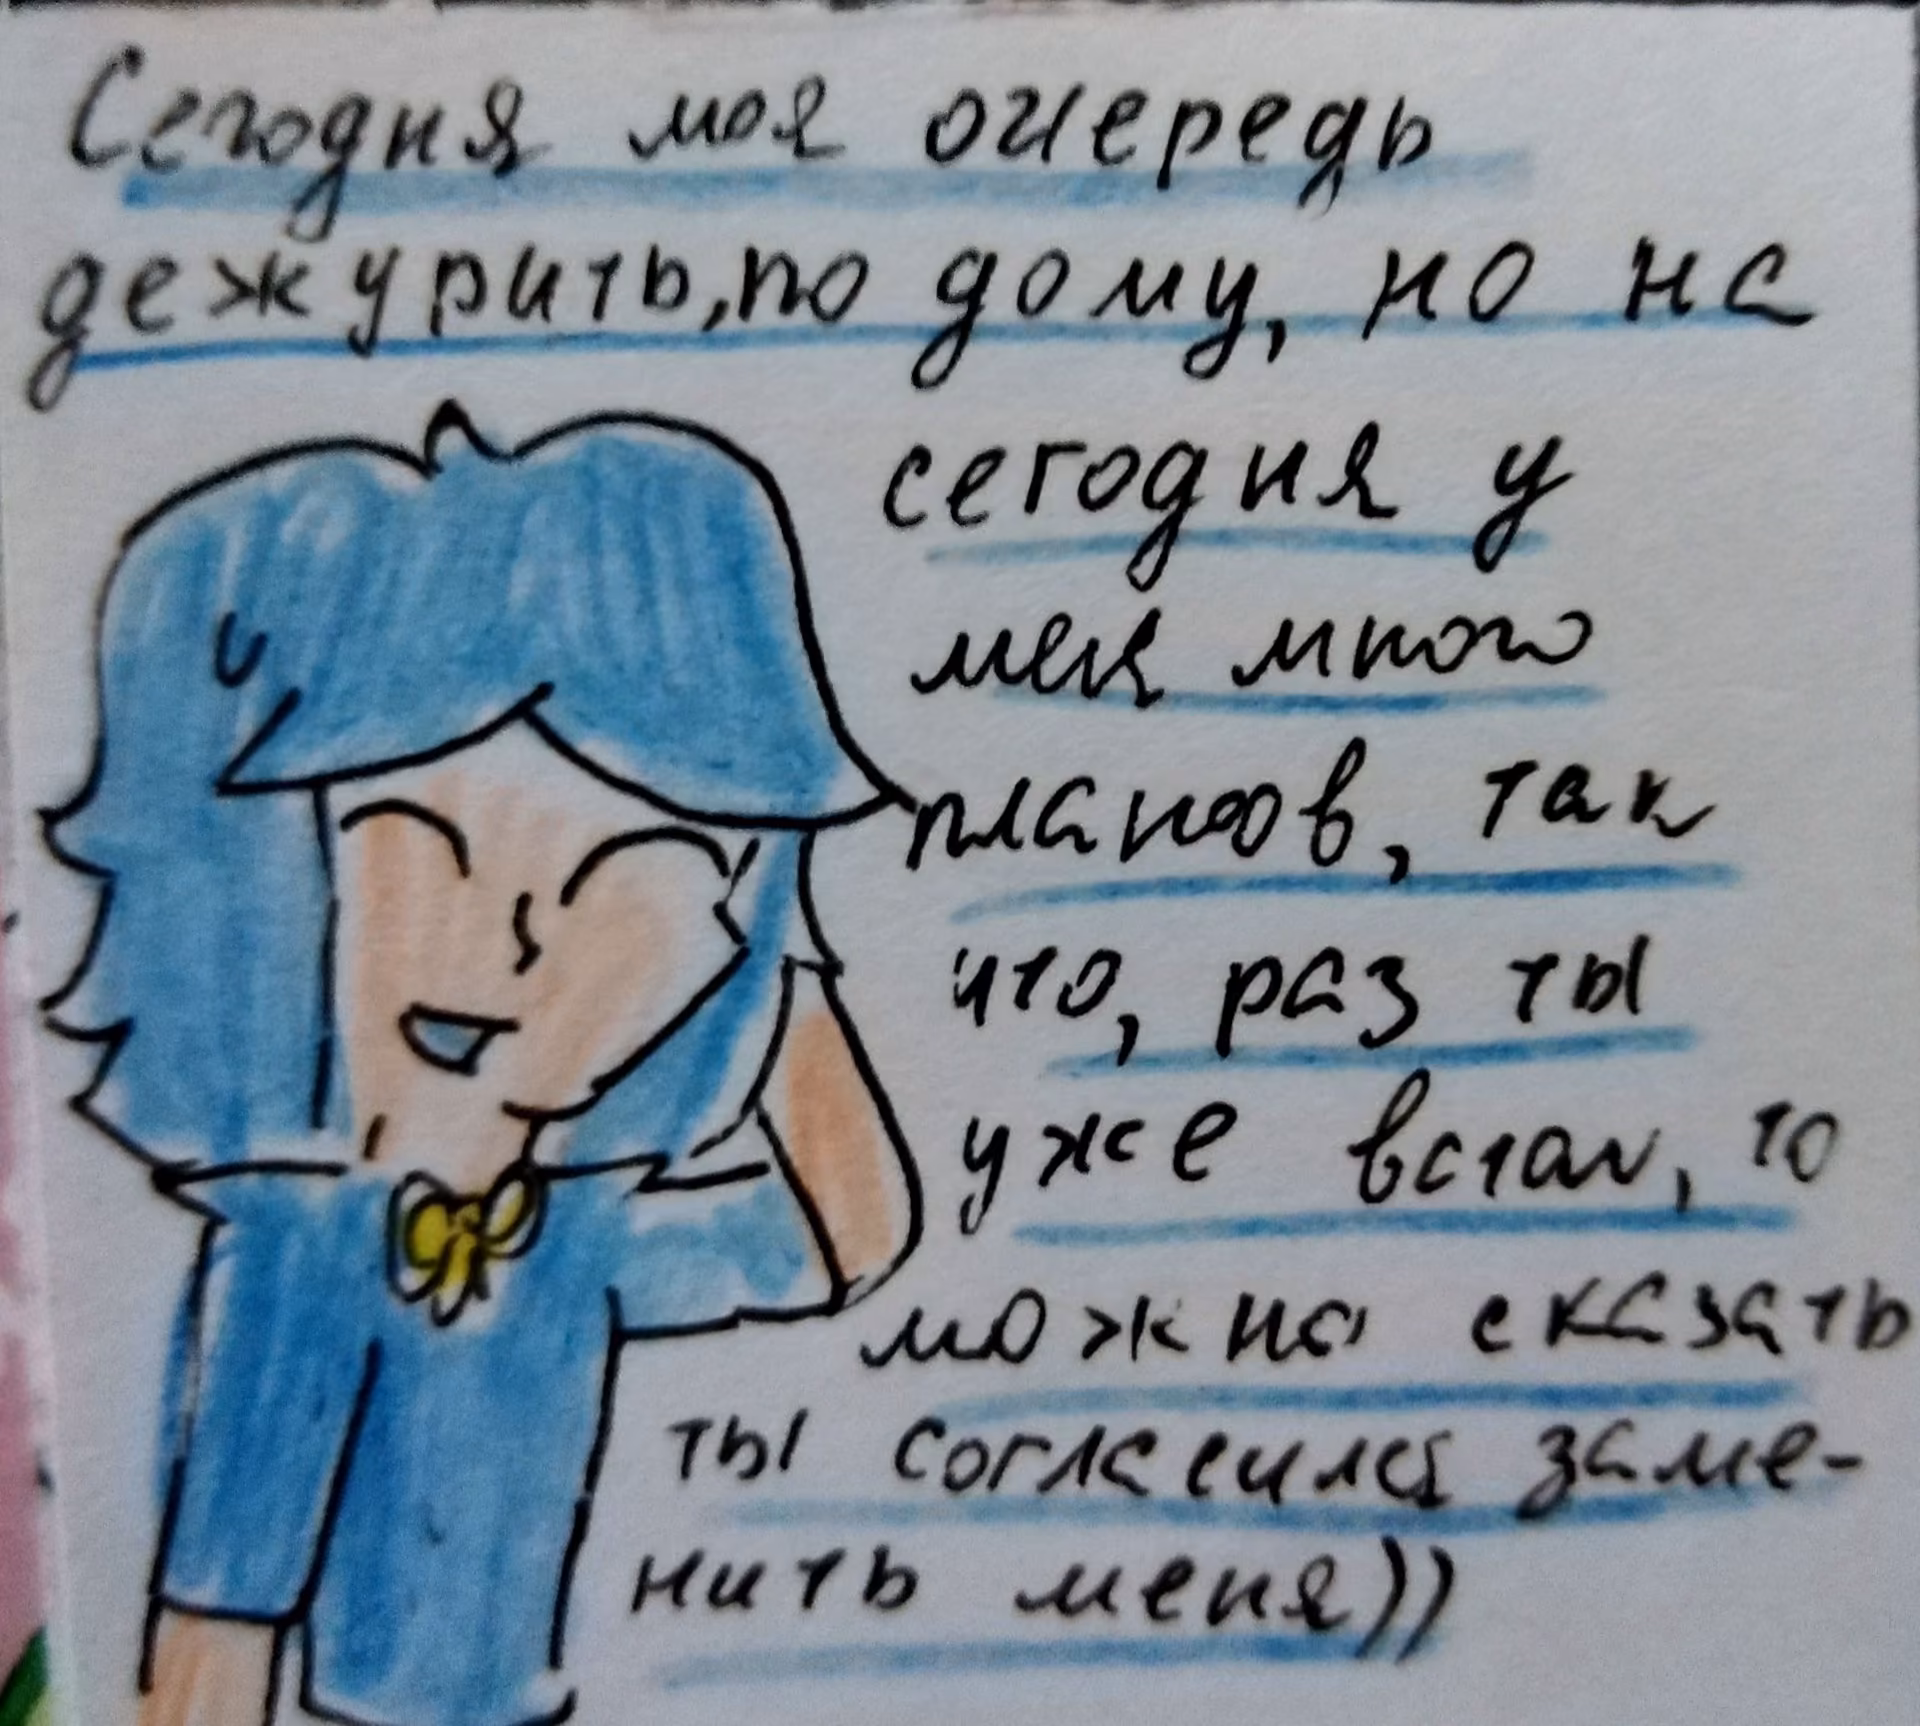 Сегодня моя очередь
дежурить, по дому, но на
сегодня у
меня много
планов, так
что, раз ты
уже встал, то
можно сказать
ты согласился заме-
нить меня))